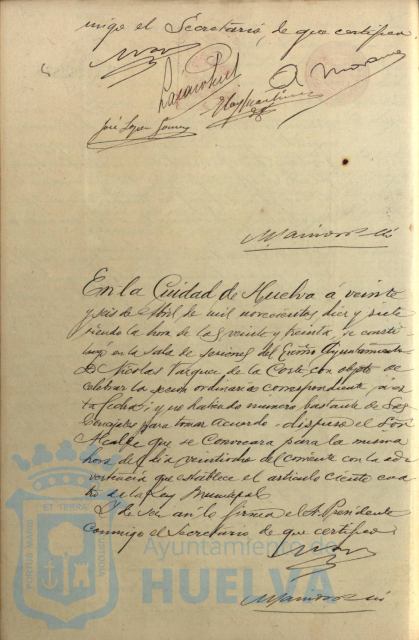 migo el Secretario, de que certifico
José López Gómez
Eloy Martínez
En la Ciudad de Huelva á veinte
y seis de Abril de mil novecientos diez y siete
siendo la hora de las veinte y treinta, se consti
tuyó en la Sala de Sesiones del Excmo Ayuntamiento
D. Nicolas Vazquez de la Corte con objeto de
celebrar la sesion ordinaria correspondiente a es
ta fecha; y no habiendo numero bastante de Sres
Concejales para tomar acuerdo, dispuso el Sor
Alcalde que se Convocara para la misma
hora del dia veintiocho del corriente con la ad
vertencia que establece el articulo ciento cua
tro de la Ley Municipal
Y de ser así lo firma el Sr. Presidente
conmigo el Secretario de que certifico
Ayuntamiento de
HUELVA
PORTUS MARIS
ET TERRAE
CUSTODIA